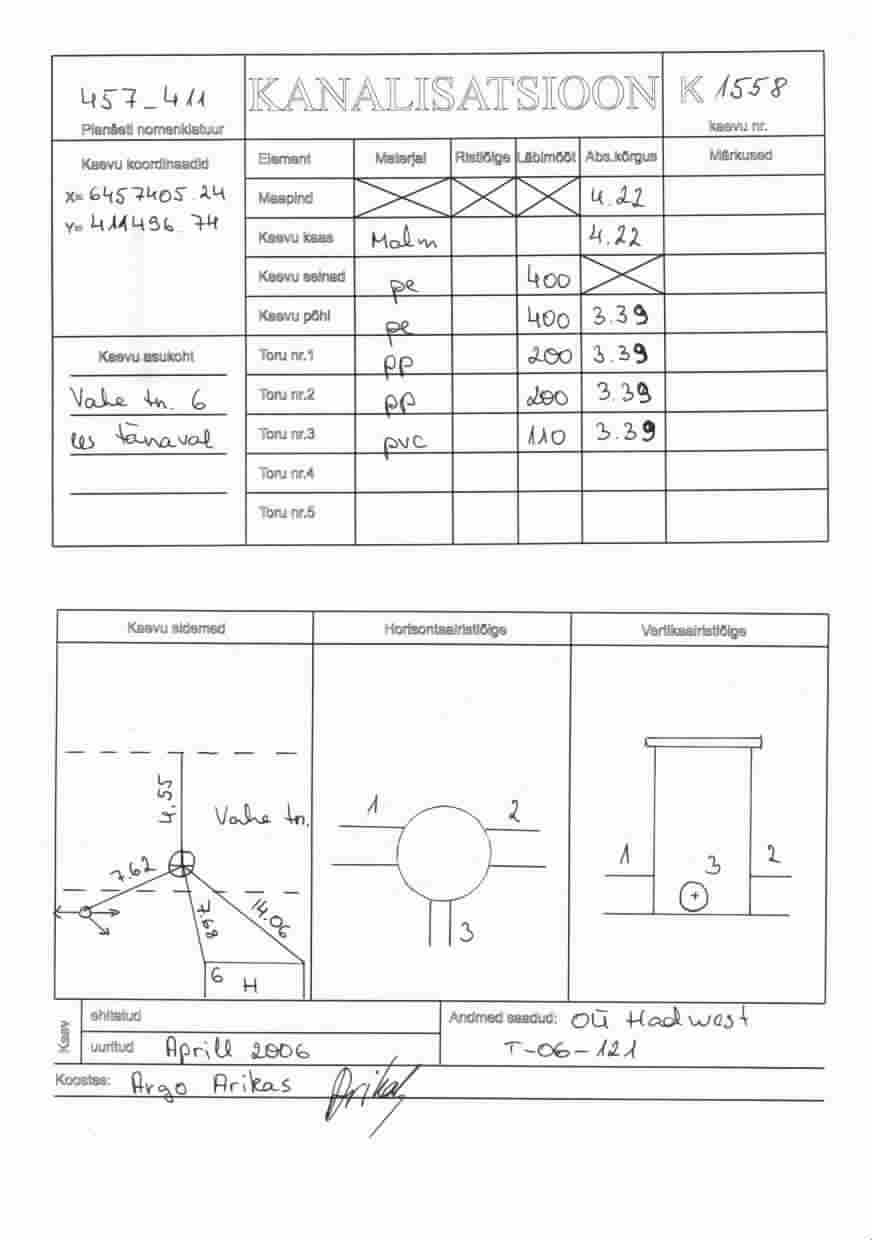 457-411
Planšeti nomenklatuur
KANALISATSIOON
K 1558
kaevu nr.
Kaevu koordinaadid
X= 6457405.24
Y= 411496.74
Element Materjal Ristlõige Läbimõõt Abs.kõrgus Märkused
Maapind 4.22
Kaevu kaas Malm 4.22
Kaevu seinad pe 400
Kaevu põhi pe 400 3.39
Toru nr.1 pp 200 3.39
Toru nr.2 pp 200 3.39
Toru nr.3 pvc 110 3.39
Toru nr.4
Toru nr.5
Kaevu asukoht
Vahe tn. 6
ees tänaval
Kaevu sidemed
Horisontaalristlõige
Vertikaalristlõige
4.55
Vahe tn.
7.62
7.68
14.06
6
H
1
2
3
1
3
2
Kaev
ehitatud
uuritud Aprill 2006
Andmed saadud: OÜ Hadwest
T-06-121
Koostas: Argo Arikas
Arikas